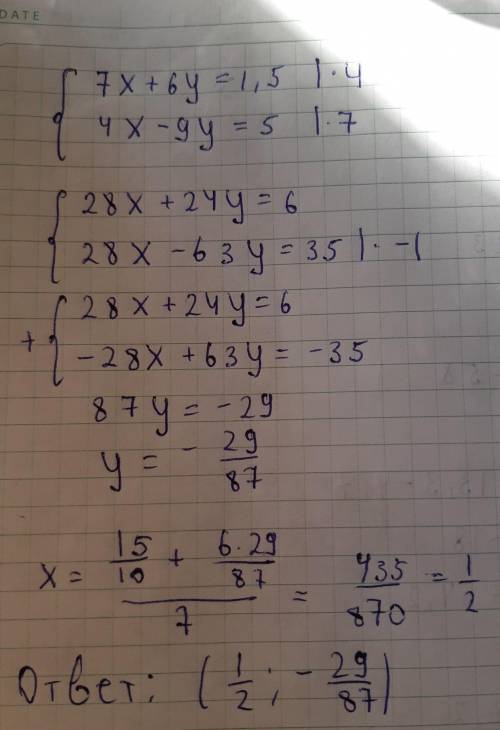 DATE
7x + 6y = 1,5 | · 4
4x - 9y = 5 | · 7
28x + 24y = 6
28x - 63y = 35 | · -1
28x + 24y = 6
+
-28x + 63y = -35
87y = -29
y = - 29/87
x = (15/10 + 6·29/87)/7 = 435/870 = 1/2
Ответ: (1/2; - 29/87)